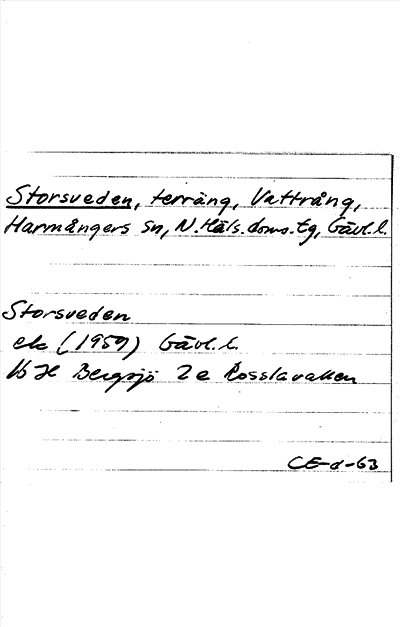 Storsveden, terräng, Vattrång,
Harmångers sn, N. Häls. doms. tg, Gävl. l.
Storsveden
ek (1959) Gävl. l.
16 H Bergsjö 2 e Rosslavallen
CE-d-63